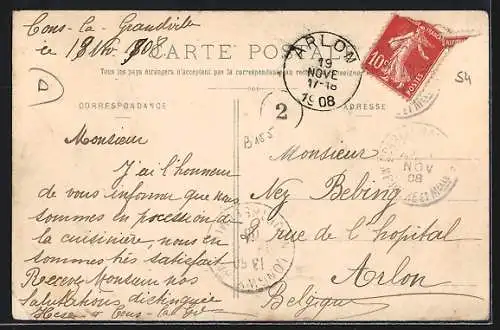 Cons-la-Grandville
le 18 No 1908
CARTE POSTALE
Tous les pays étrangers n'acceptent pas la correspondance
CORRESPONDANCE
ADRESSE
Monsieur
J'ai l'honneur
de vous informer que nous
sommes en pocession de
la cuisinière, nous en
sommes très satisfait
Recevez Monsieur nos
salutations distinguée
Cons-la-
ARLON
19
NOVE
17-18
1908
2
B 185
10c
POSTES
54
a
NOV
08
Monsieur
Nez Bebing
8 rue de l'hopital
Arlon
Belgique